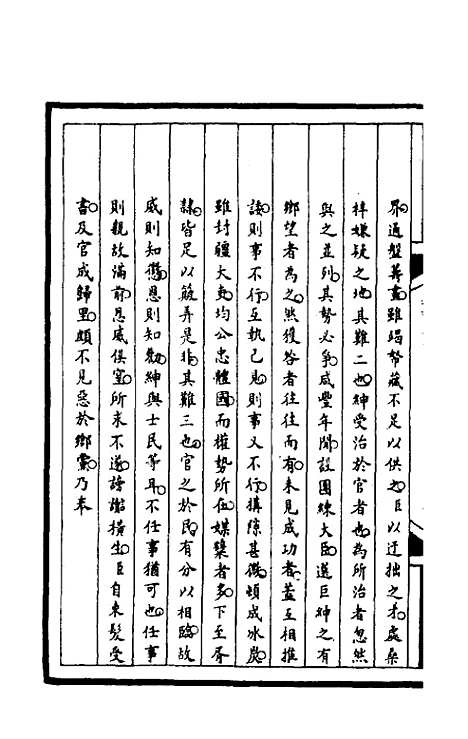 界通盤籌畫雖竭帑藏不足以供之臣以迂拙之才處桑
梓嫌疑之地其難二也紳受治於官者也為所治者忽然
與之並列其勢必爭咸豐年間設團練大臣選巨紳之有
鄉望者為之然獲咎者往往而有未見成功者蓋互相推
諉則事不行互執己見則事又不行搆隙甚微頓成冰炭
雖封疆大吏均公忠體國而權勢所在媒孽者多下至胥
隸皆足以簸弄是非其難三也官之於民有分以相臨故
威則知懲恩則知勸紳與士民等耳不任事猶可也任事
則親故滿前恩威俱窒所求不遂謗讟橫生臣自束髮受
書及官成歸里頗不見惡於鄉黨乃奉